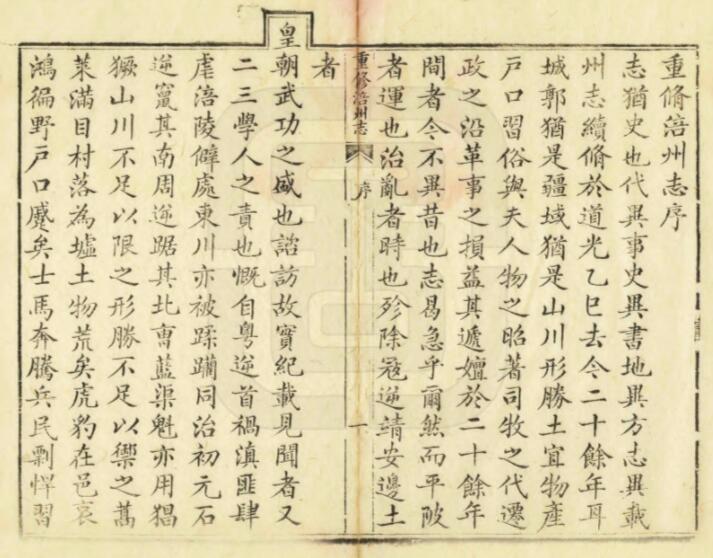 重脩涪州志序
志猶史也代異事史異書地異方志異載
州志續脩於道光乙巳去今二十餘年耳
城郭猶是疆域猶是山川形勝土宜物產
戸口習俗與夫人物之昭著司牧之代遷
政之沿革事之損益其遞嬗於二十餘年
間者今不異昔也志曷急乎爾然而平陂
者運也治亂者時也殄除寇逆靖安邊土
重修涪州志
序
一
者
皇朝武功之盛也諮訪故實紀載見聞者又
二三學人之責也慨自粵逆首禍滇匪肆
虐涪陵僻處東川亦被蹂躪同治初元石
逆竄其南周逆踞其北曹藍渠魁亦用猖
獗山川不足以限之形勝不足以禦之蒿
萊滿目村落為墟土物荒矣虎豹在邑哀
鴻徧野戸口蹙矣士馬奔騰兵民剽悍習